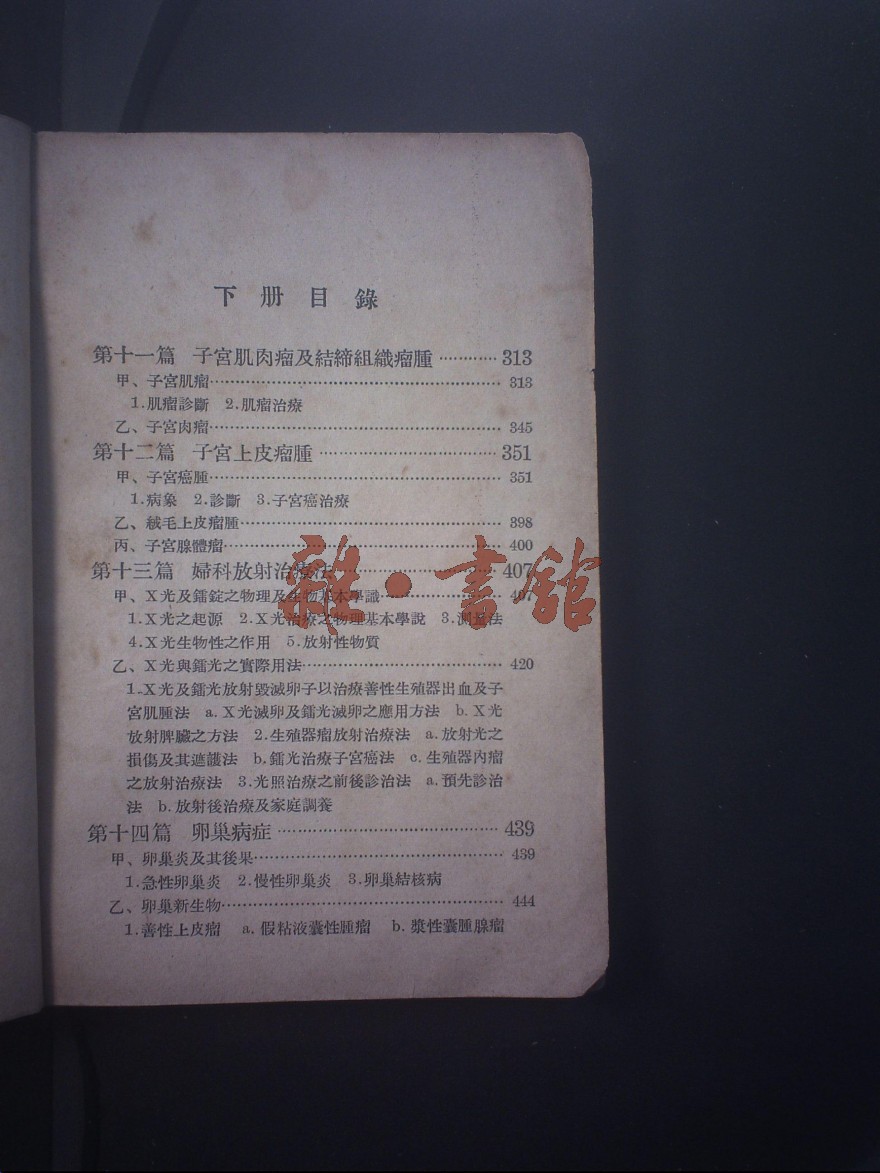 下册目錄
第十一篇 子宮肌肉瘤及結締組織瘤腫…………313
甲、子宮肌瘤…………313
1.肌瘤診斷 2.肌瘤治療
乙、子宮肉瘤…………345
第十二篇 子宮上皮瘤腫…………351
甲、子宮癌腫…………351
1.病象 2.診斷 3.子宮癌治療
乙、絨毛上皮瘤腫…………398
丙、子宮腺體瘤…………400
第十三篇 婦科放射治療法…………407
甲、X光及鐳錠之物理及生物基本學識…………407
1.X光之起源 2.X光治療之物理基本學說 3.測量法
4.X光生物性之作用 5.放射性物質
乙、X光與鐳光之實際用法…………420
1.X光及鐳光放射毀滅卵子以治療善性生殖器出血及子
宮肌腫法 a.X光滅卵及鐳光滅卵之應用方法 b.X光
放射脾臟之方法 2.生殖器瘤放射治療法 a.放射光之
損傷及其遮護法 b.鐳光治療子宮癌法 c.生殖器內瘤
之放射治療法 3.光照治療之前後診治法 a.預先診治
法 b.放射後治療及家庭調養
第十四篇 卵巢病症…………439
甲、卵巢炎及其後果…………439
1.急性卵巢炎 2.慢性卵巢炎 3.卵巢結核病
乙、卵巢新生物…………444
1.善性上皮瘤 a.假粘液囊性腫瘤 b.漿性囊腫腺瘤
雜·書館